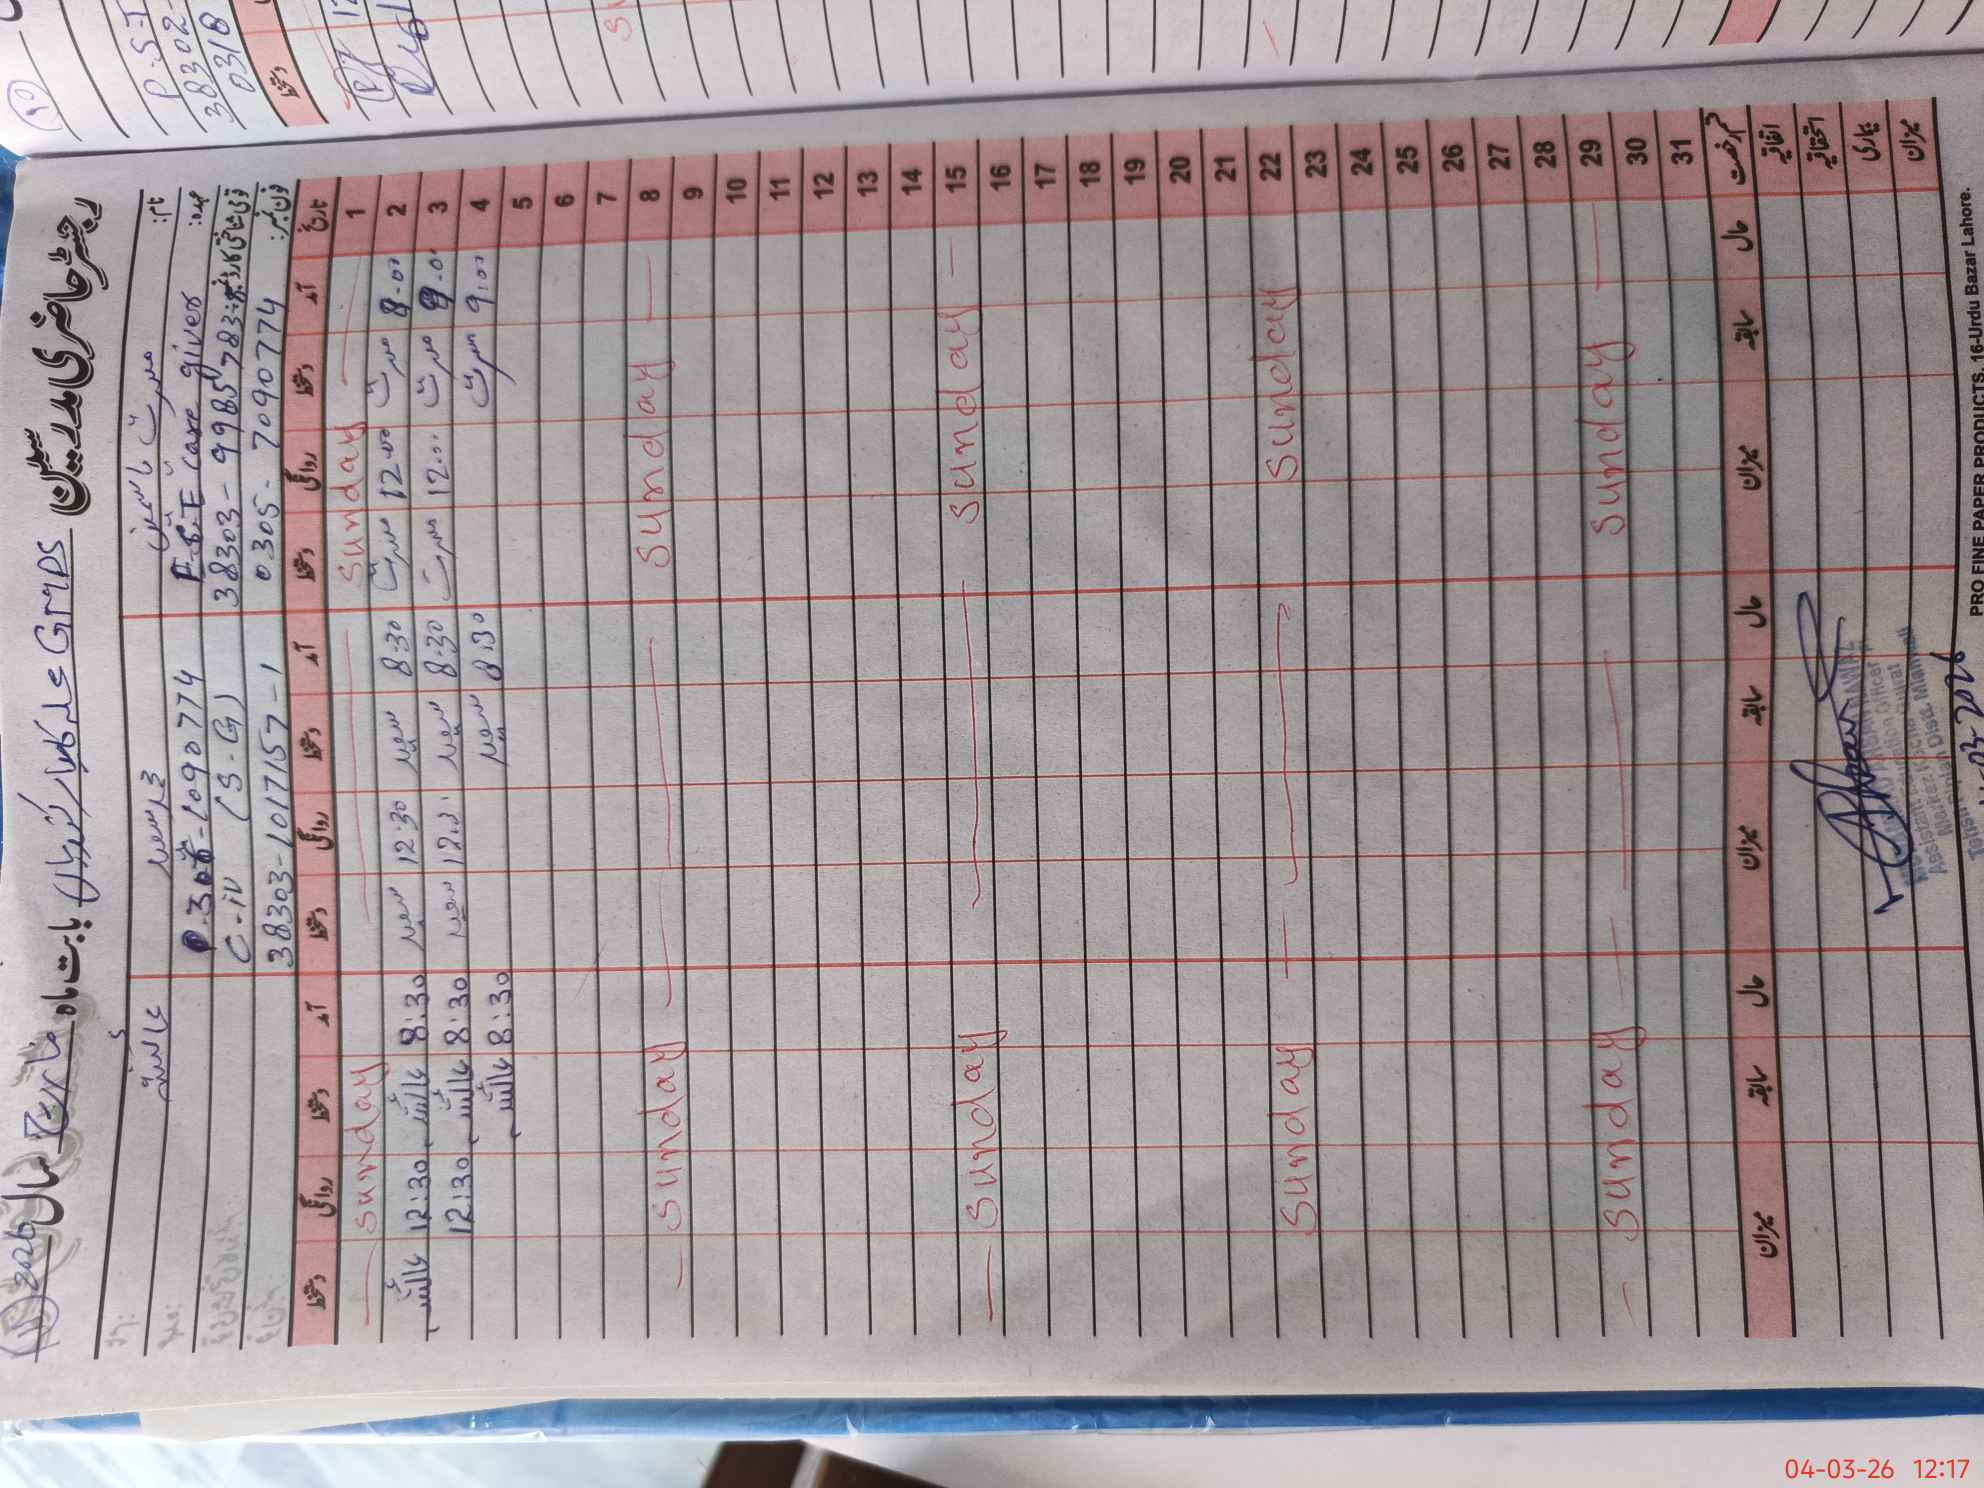 رجسٹر حاضری مدرسین عملہ GMPS بابت ماہ مارچ سال 2026
نام: مسرت یاسمین محمد سعید عائشہ
عہدہ: E care giver 0306-1090774
38303-9985783 C-iv (S.G)
فون نمبر: 0305-7090774 38303-1017157-1
تاریخ آمد دستخط روانگی دستخط آمد دستخط روانگی دستخط آمد دستخط روانگی دستخط
1 Sunday Sunday
2 8.00 مسرت 12.00 مسرت 8:30 سعید 12:30 سعید 8:30 عائشہ 12:30 عائشہ
3 مسرت 12.00 مسرت 8:30 سعید سعید 8:30 عائشہ 12:30
4 9.00 مسرت 8:30 سعید 8:30 عائشہ
5
6
7
8 Sunday Sunday
9
10
11
12
13
14
15 Sunday Sunday
16
17
18
19
20
21
22 Sunday Sunday
23
24
25
26
27
28
29 Sunday Sunday
30
31
قسم رخصت حال سابقہ میزان حال سابقہ میزان حال سابقہ میزان
اتفاقیہ
استحقاقیہ
بیماری
میزان
Assistant Education Officer
PRO FINE PAPER PRODUCTS, 16-Urdu Bazar Lahore.
P.S.T
38302-
0318
دستخط
04-03-26 12:17